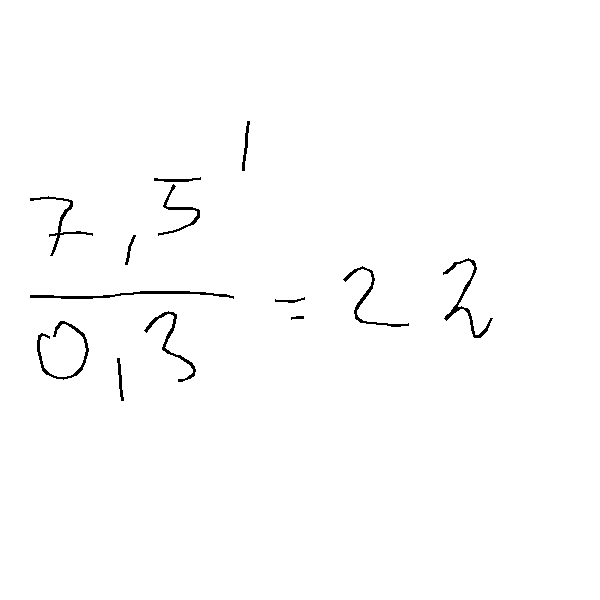 7,5 '
0,3 = 22